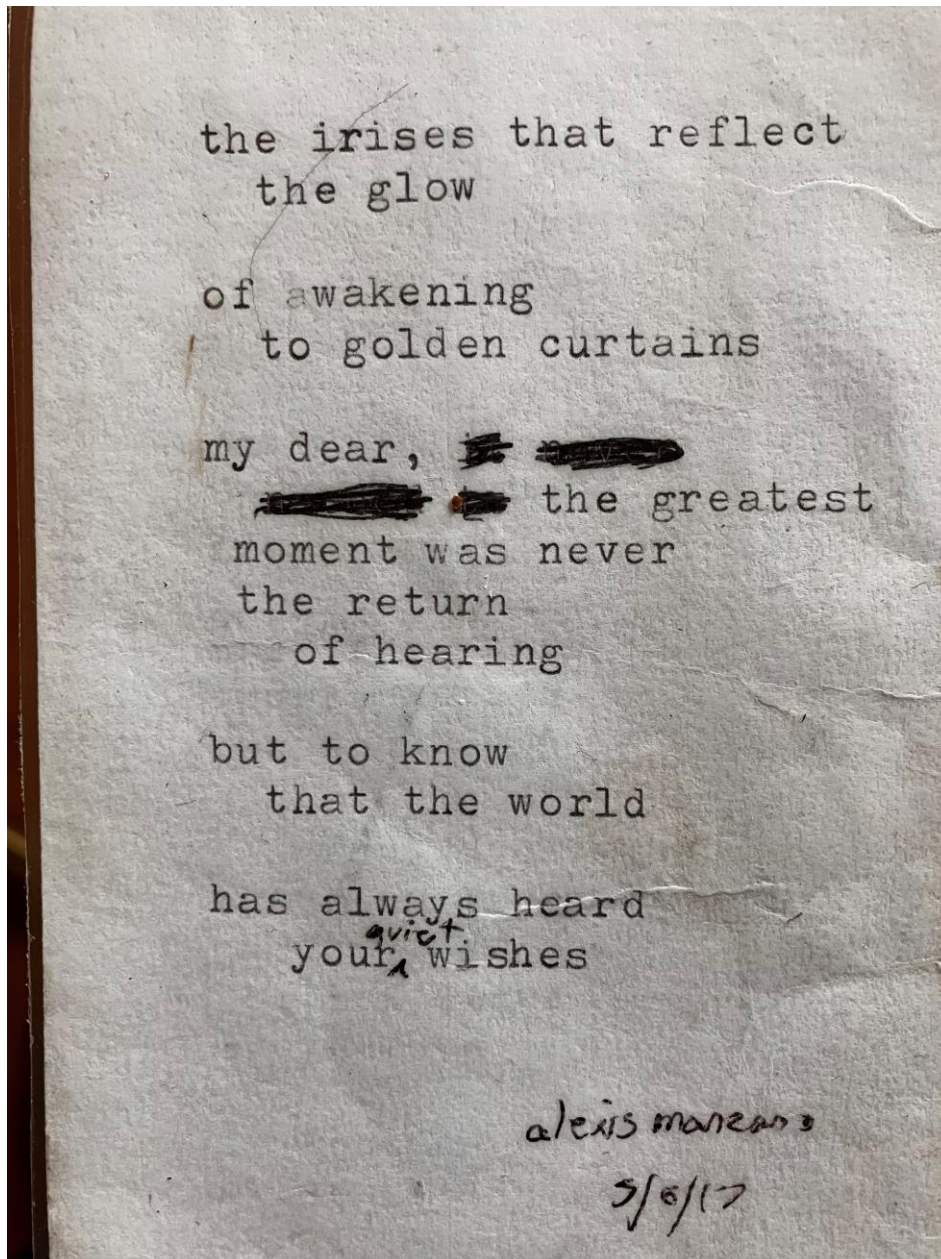 the irises that reflect
the glow
of awakening
to golden curtains
my dear,
the greatest
moment was never
the return
of hearing
but to know
that the world
has always heard
your quiet wishes
alexis manzano
5/6/17